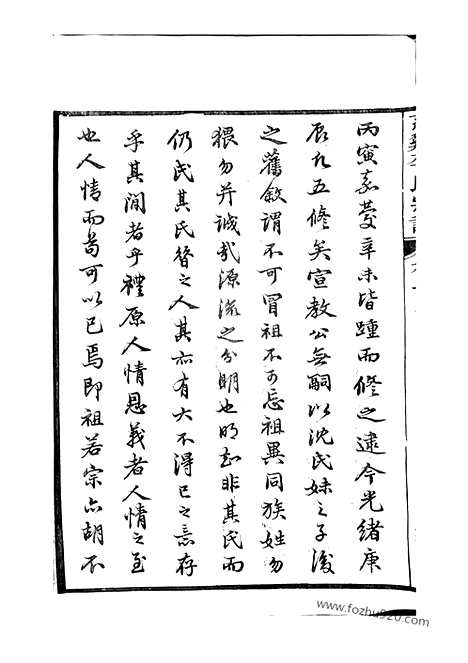 丙寅嘉慶辛未皆踵而修之逮今光緒庚
辰凡五修矣宣教公無嗣以沈氏妹之子後
之舊敘謂不可冒祖不可忘祖異同族姓勿
猥勿并誠哉源流之分明也明知非其氏而
仍氏其氏昝之人其亦有大不得已之意存
乎其間者乎禮原人情恩義者人情之至
也人情而苟可以已焉即祖若宗亦胡不
www.fozhu920.com